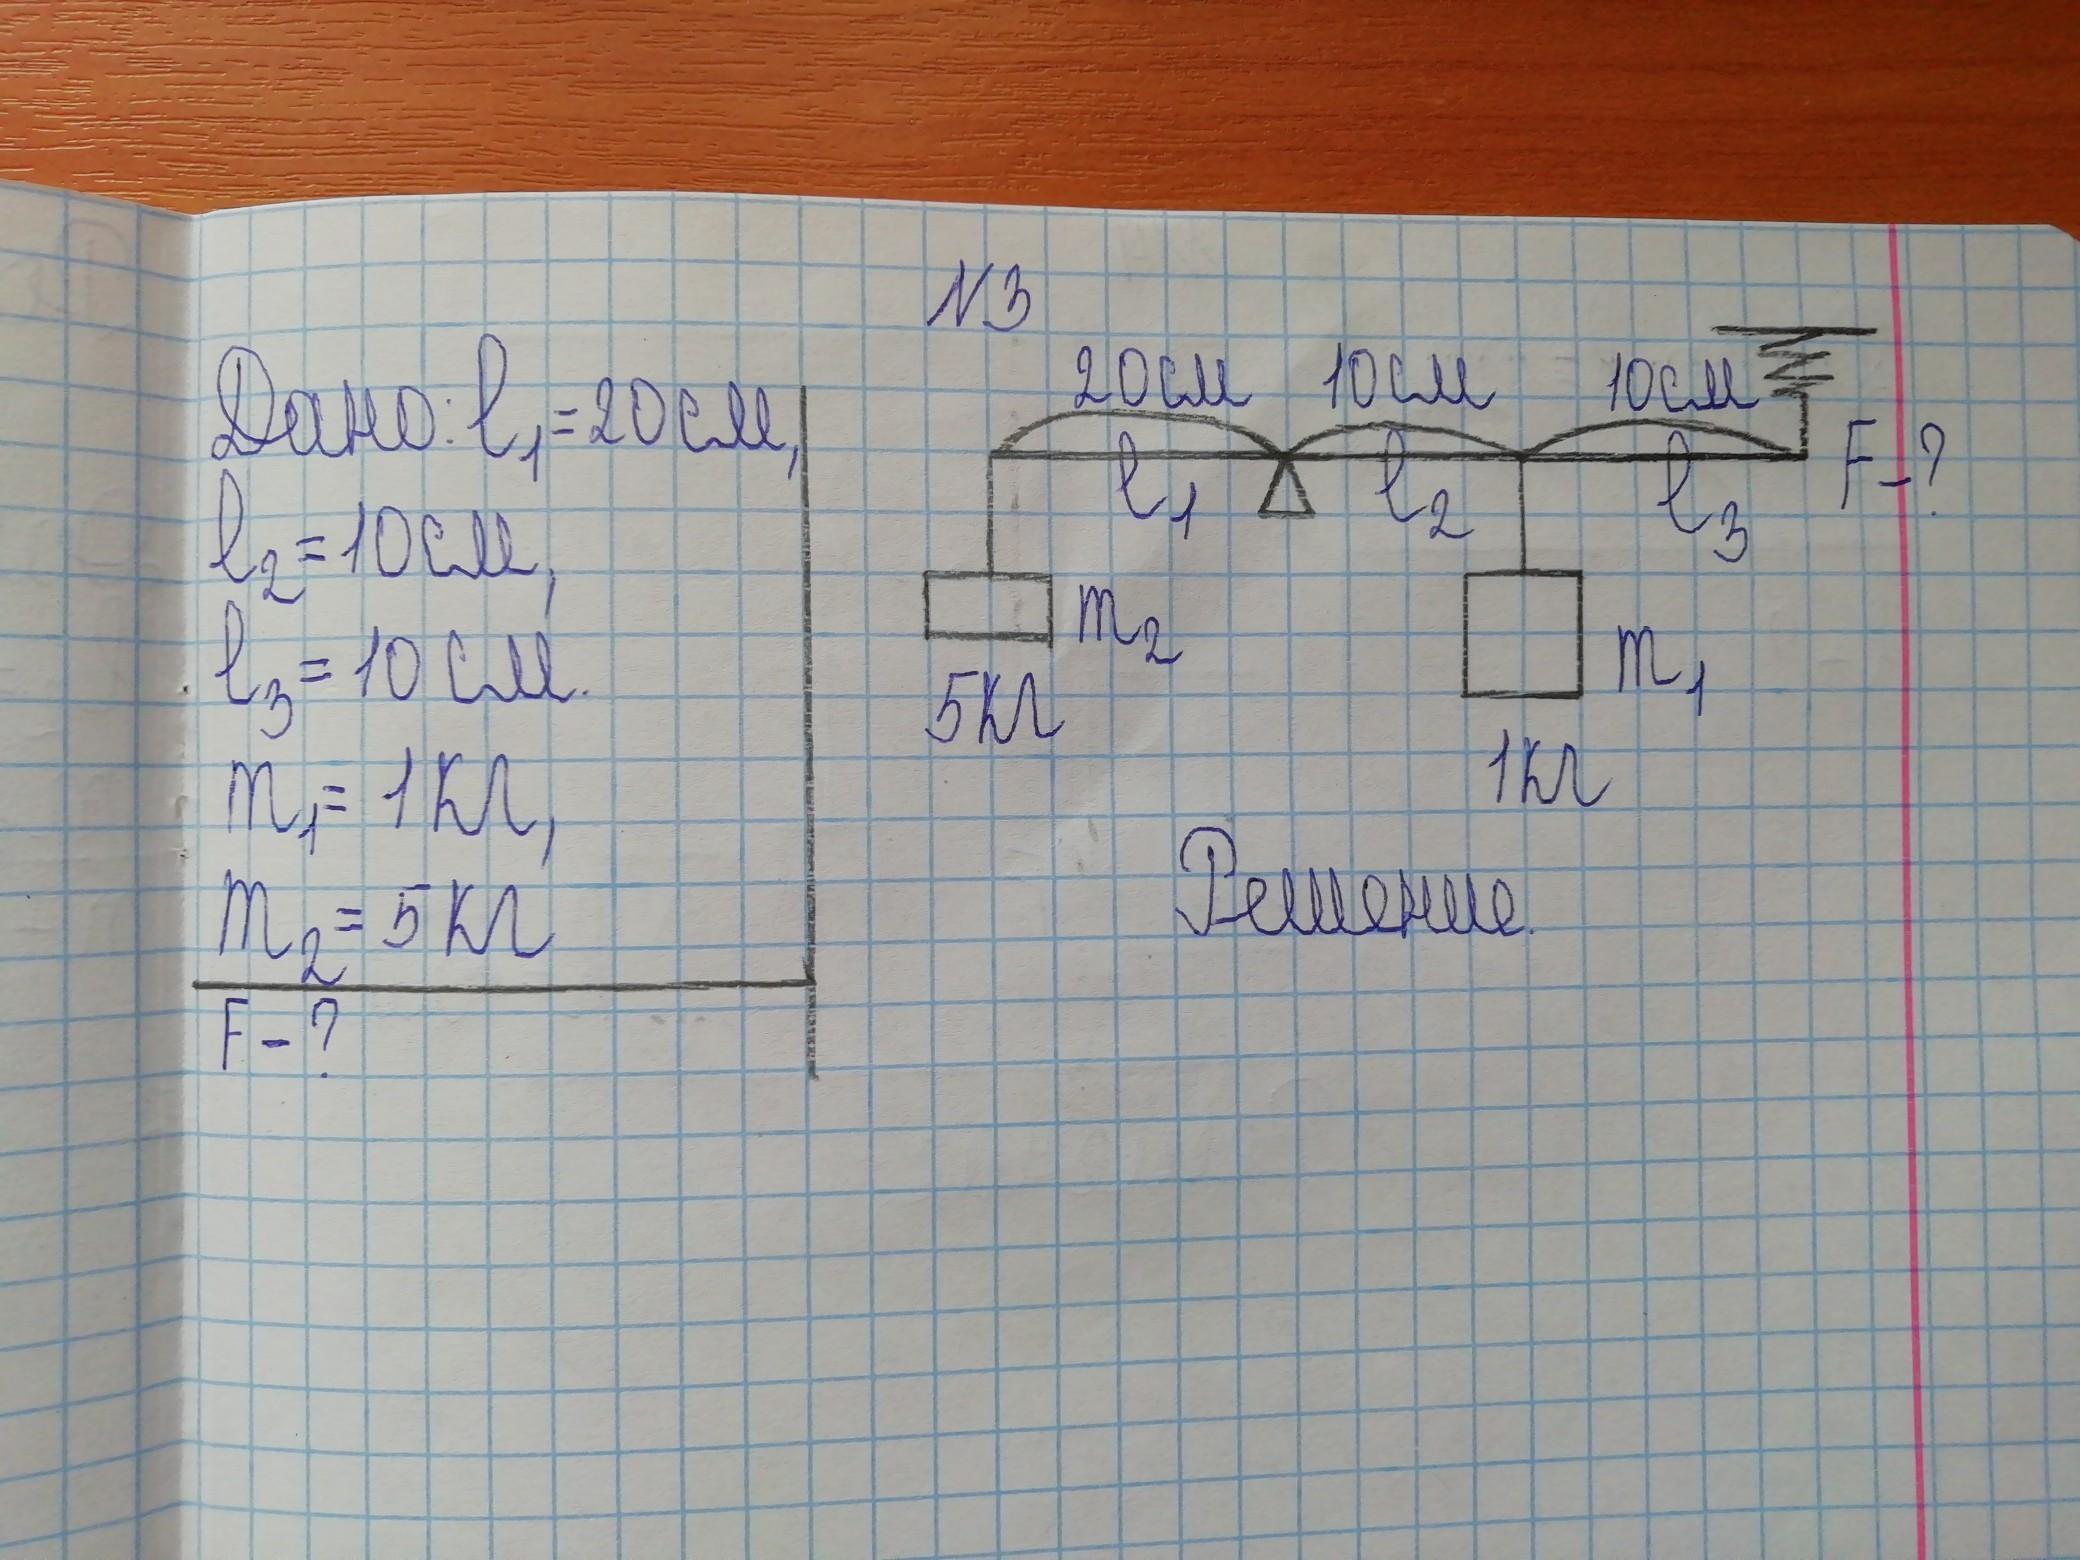 N3
Дано: l1=20см,
l2=10см,
l3=10см.
m1=1кг,
m2=5кг
F-?
20см 10см 10см
l1 l2 l3 F-?
m2 m1
5кг 1кг
Решение.